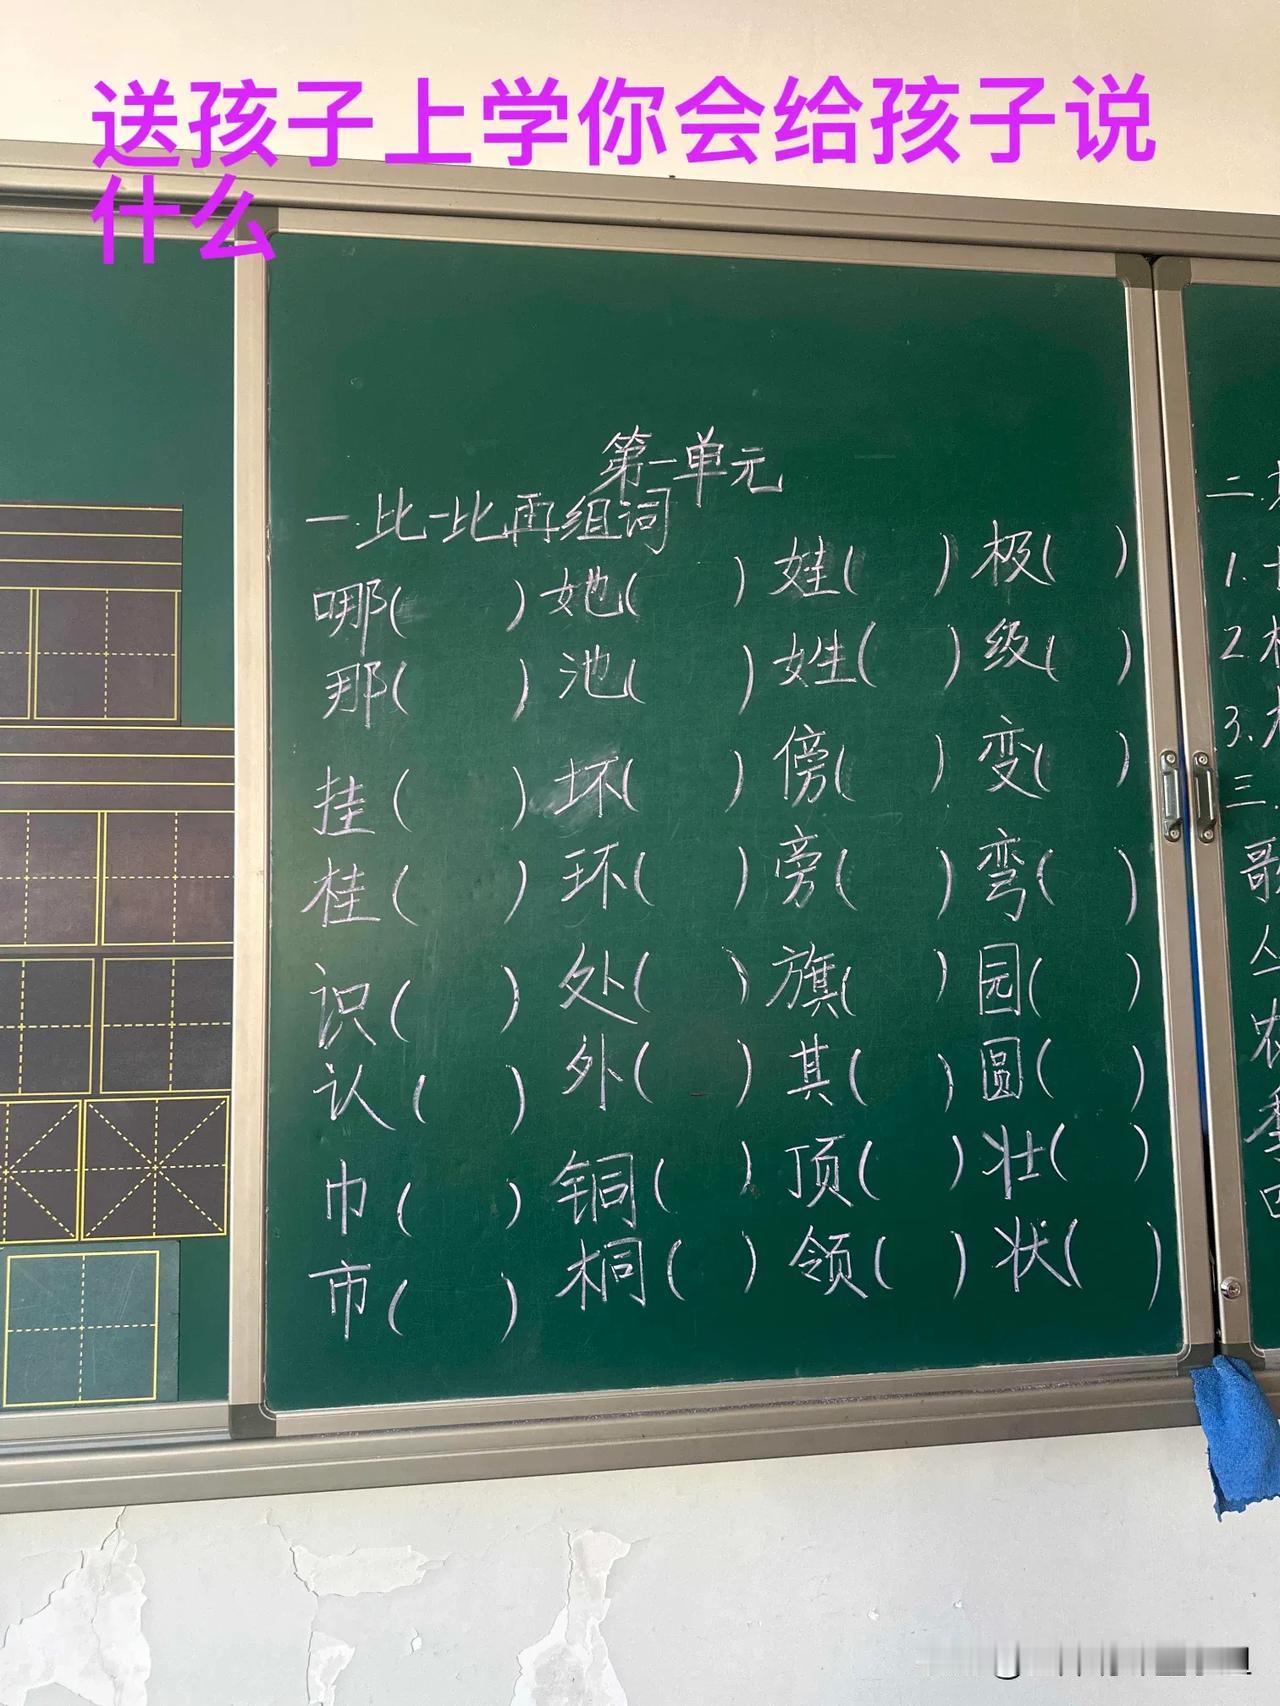 送孩子上学你会给孩子说
什么
第一单元
一.比一比再组词
哪( ) 她( ) 娃( ) 极( )
那( ) 池( ) 姓( ) 级( )
挂( ) 坏( ) 傍( ) 变( )
桂( ) 环( ) 旁( ) 弯( )
识( ) 处( ) 旗( ) 园( )
认( ) 外( ) 其( ) 圆( )
巾( ) 铜( ) 顶( ) 壮( )
市( ) 桐( ) 领( ) 状( )
二.
1.
2.
3.
三.
歌